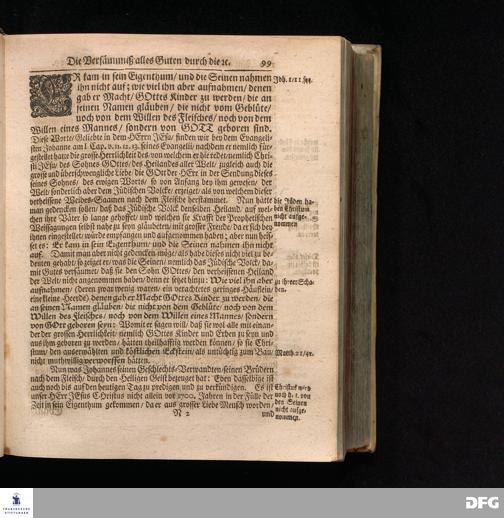 Die Versäumniß alles Guten durch die ꝛc. 99
ER kam in sein Eigenthum/ und die Seinen nahmen
Joh. 1/11 seq.
ihn nicht auf; wie viel ihn aber aufnahmen/ denen
gab er Macht/ GOttes Kinder zu werden/ die an
seinen Namen gläuben/ die nicht vom Geblüte/
noch von dem Willen des Fleisches/ noch von dem
Willen eines Mannes/ sondern von GOTT geboren sind.
Diese Worte/ Geliebte in dem HErrn JEsu/ finden wir bey dem Evangeli-
sten Johanne am 1 Cap. v. 11. 12. 13. seines Evangelii/ nachdem er nemlich für-
gestellet hatte die grosse Herrlichkeit des/ von welchem er hie redet/ nemlich Chri-
sti JEsu/ des Sohnes GOttes/ des Heilandes aller Welt/ zugleich auch die
grosse und überschwengliche Liebe/ die GOtt der HErr in der Sendung dieses
seines Sohnes/ des ewigen Worts/ so von Anfang bey ihm gewesen/ der
Welt/ sonderlich aber dem Jüdischen Volcke/ erzeiget/ als von welchem dieser
verheissene Weibes-Saamen nach dem Fleische herstammet. Nun hätte
die Jüden ha-
man gedencken sollen/ daß das Jüdische Volck denselben Heiland/ auf wel-
ben Christum
chen ihre Väter so lange gehoffet/ und welchen sie Krafft der Prophetischen
nicht aufge-
Weissagungen selbst nahe zu seyn gläubeten/ mit grosser Freude/ da er sich bey
nommen
ihnen eingestellet/ würde empfangen und aufgenommen haben; aber nun heis-
set es: Er kam in sein Eigenthum/ und die Seinen nahmen ihn nicht
auf. Damit man aber nicht gedencken möge/ als habe dieses nicht viel zu be-
deuten gehabt/ so zeiget er/ was die Seinen/ nemlich das Jüdische Volck/ da-
mit Gutes versäumet/ daß sie den Sohn GOttes/ den verheissenen Heiland
der Welt/ nicht angenommen haben/ denn er setzt hinzu: Wie viel ihn aber
zu ihrem Scha-
aufnahmen/ (deren zwar wenig waren/ ein verachtetes geringes Häuflein/
den.
eine kleine Heerde) denen gab er Macht GOttes Kinder zu werden/ die
an seinen Namen gläuben/ die nicht von dem Geblüte/ noch von dem
Willen des Fleisches/ noch von dem Willen eines Mannes/ sondern
von GOtt geboren seyn: Womit er sagen will/ daß sie wol alle mit einan-
der der grossen Herrlichkeit/ nemlich GOttes Kinder und Erben zu seyn und
aus ihm geboren zu werden/ hätten theilhafftig werden können/ so sie Chri-
stum/ den auserwählten und köstlichen Eckstein/ als untüchtig zum Bau/
Matth. 21/42.
nicht muthwillig verworffen hätten.
Nun was Johannes seinen Geschlechts-Verwandten/ seinen Brüdern
nach dem Fleisch/ durch den Heiligen Geist bezeuget hat: Eben dasselbige ist
auch noch bis auf den heutigen Tag zu predigen und zu verkündigen. Es ist
Christus wird
unser HErr JEsus Christus nicht allein vor 1700. Jahren in der Fülle der
noch h. t. von
Zeit in sein Eigenthum gekommen/ da er aus grosser Liebe Mensch worden/
den Seinen
nicht aufge-
N 2 und
nommen.
FRANCKESCHE STIFTUNGEN
DFG